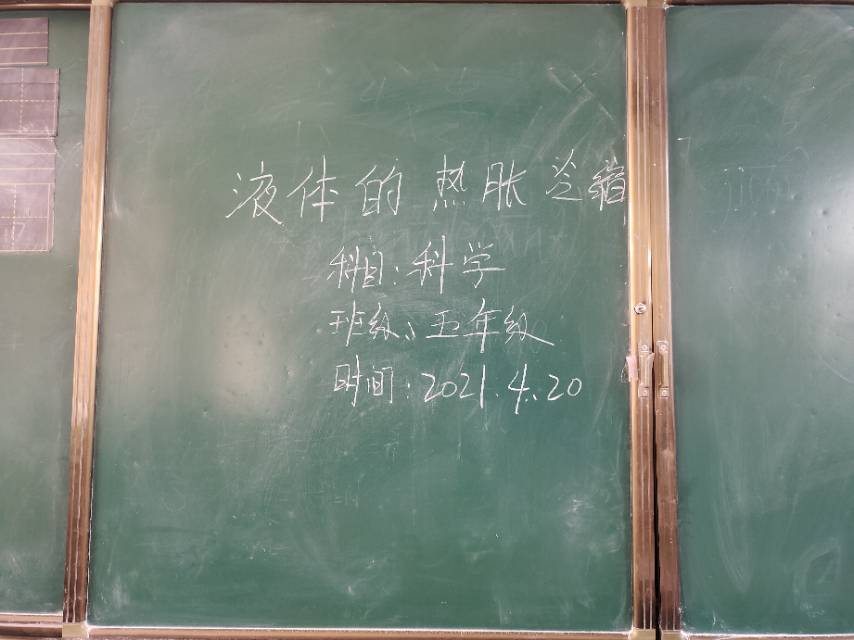 液体的热胀冷缩
科目:科学
班级:五年级
时间:2021.4.20